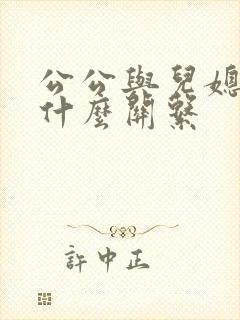 公公與兒媳
什麼關繫
許中正